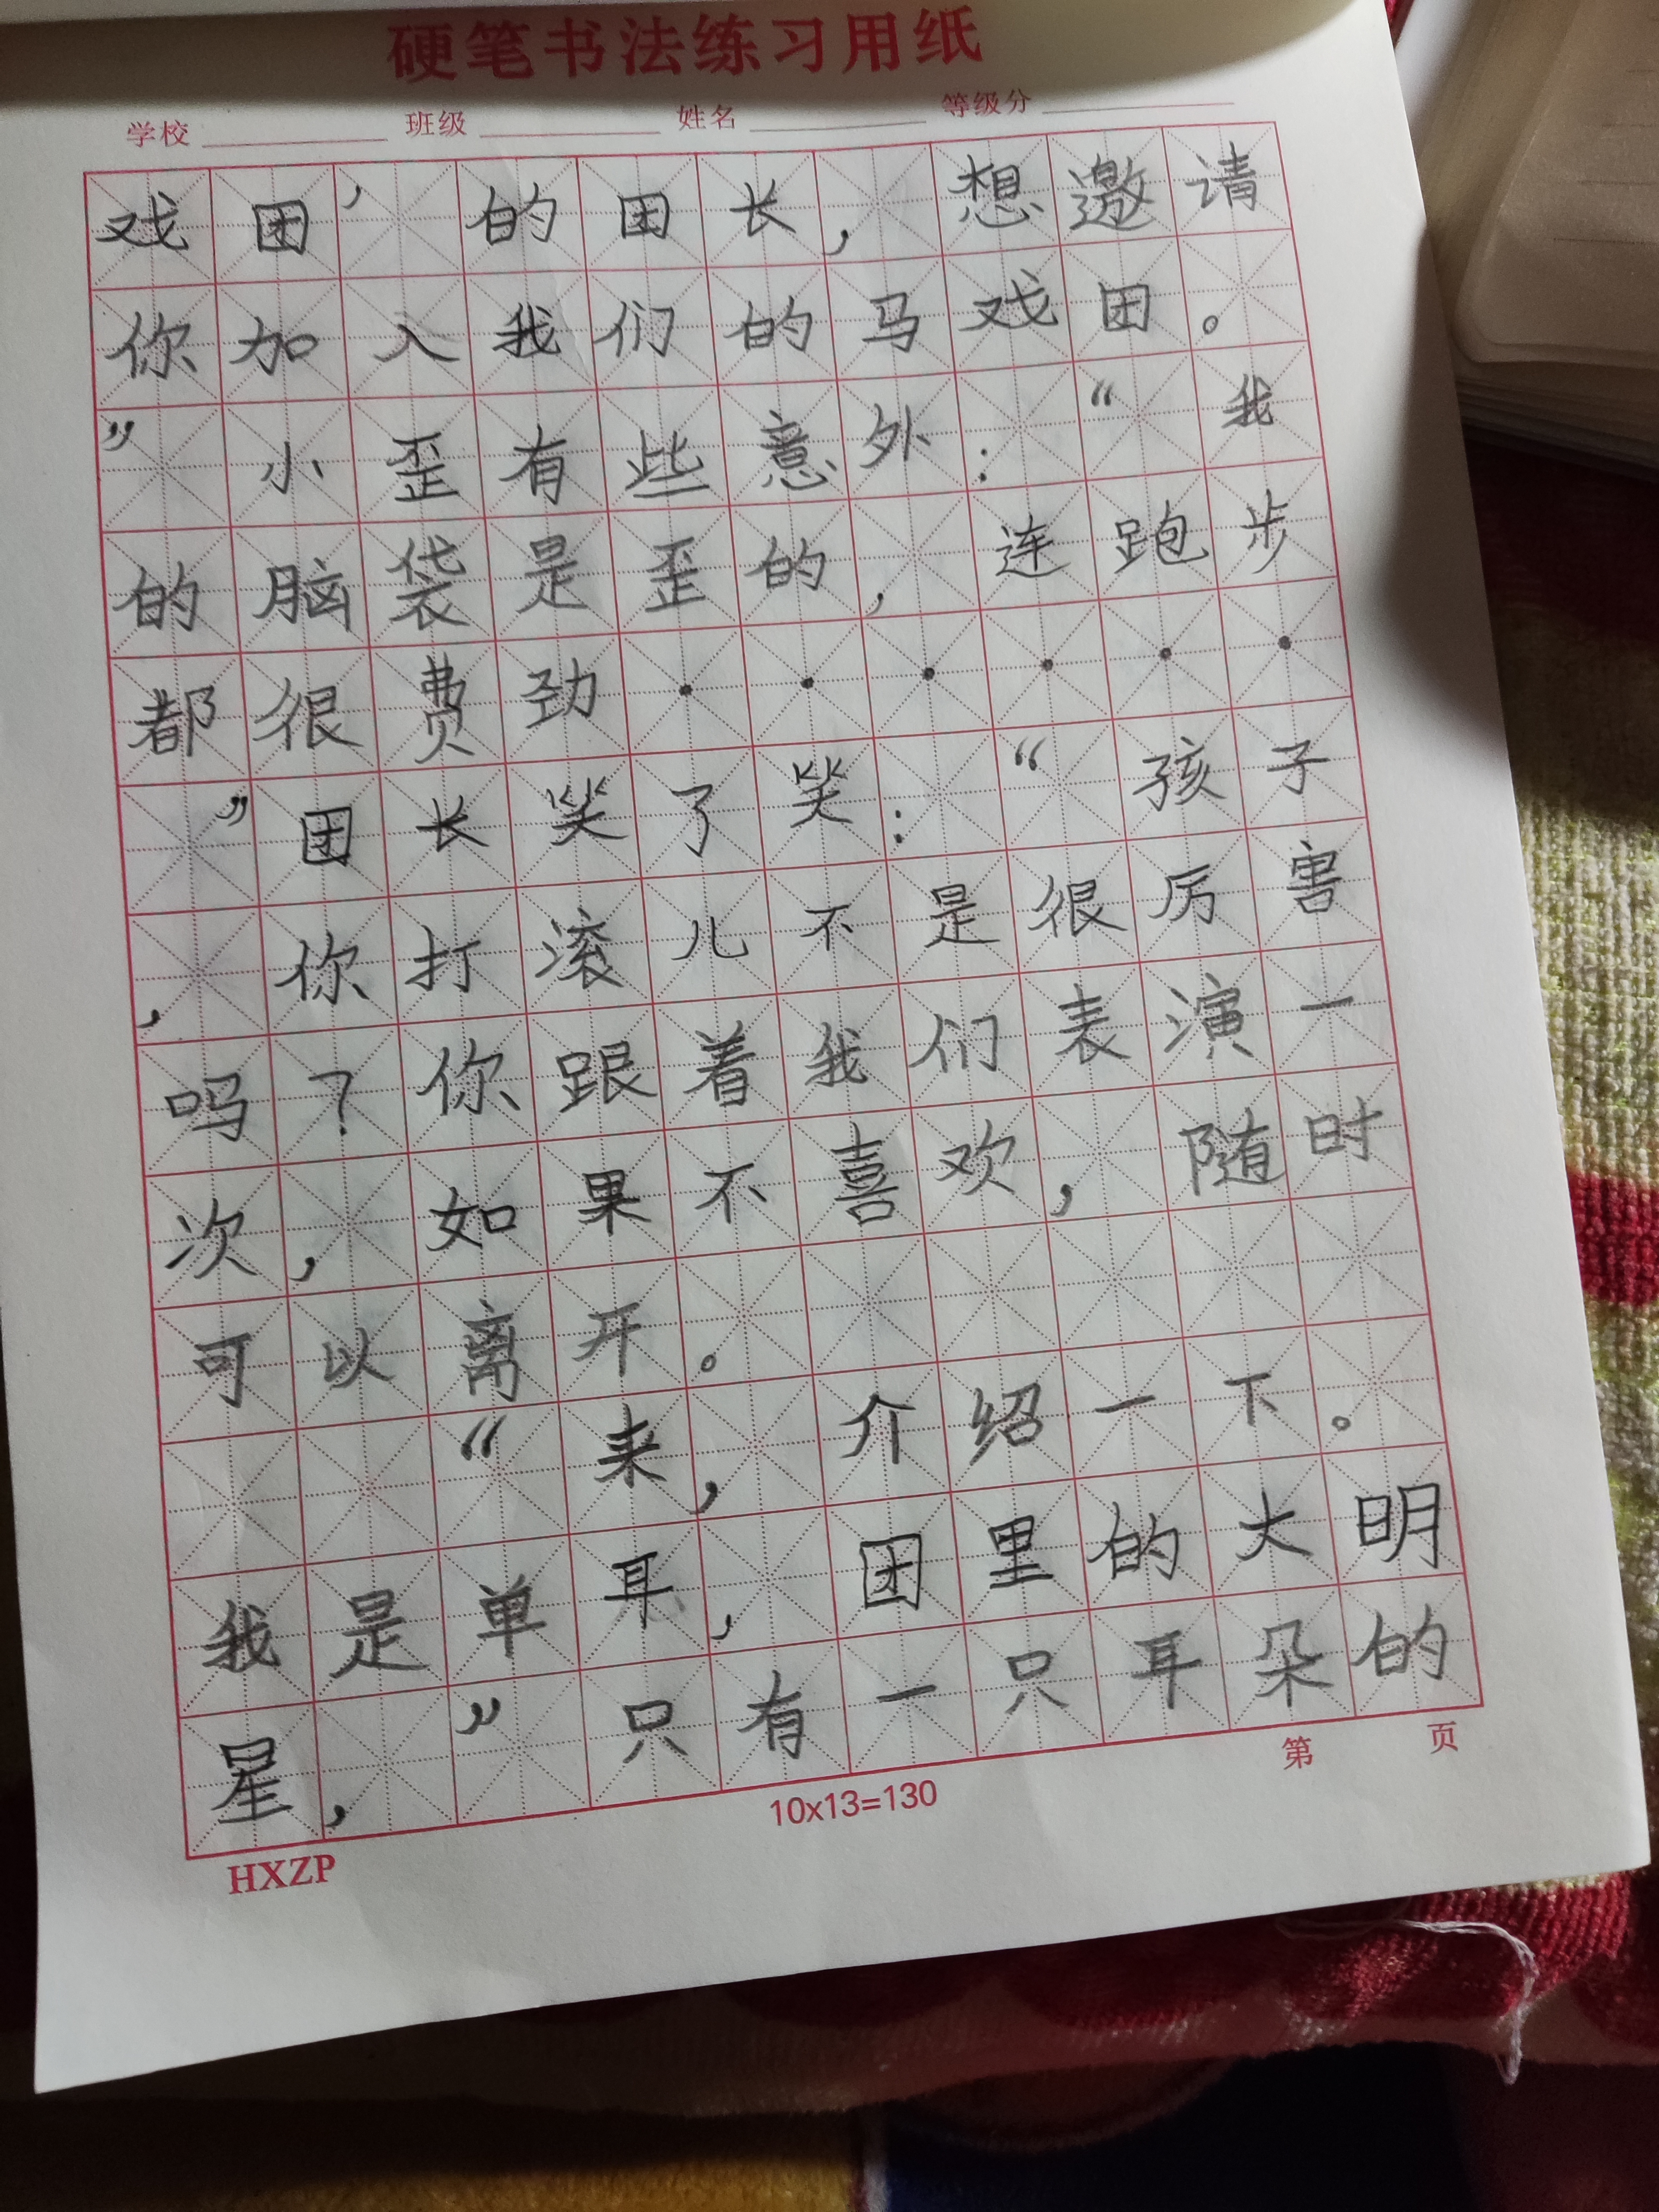 硬笔书法练习用纸
学校 班级 姓名 等级分
戏团’的团长，想邀请
你加入我们的马戏团。
”小歪有些意外：“我
的脑袋是歪的，连跑步
都很费劲······
”团长笑了笑：“孩子
，你打滚儿不是很厉害
吗？你跟着我们表演一
次，如果不喜欢，随时
可以离开。
“来，介绍一下。
我是单耳，团里的大明
星，”只有一只耳朵的
第 页
10x13=130
HXZP